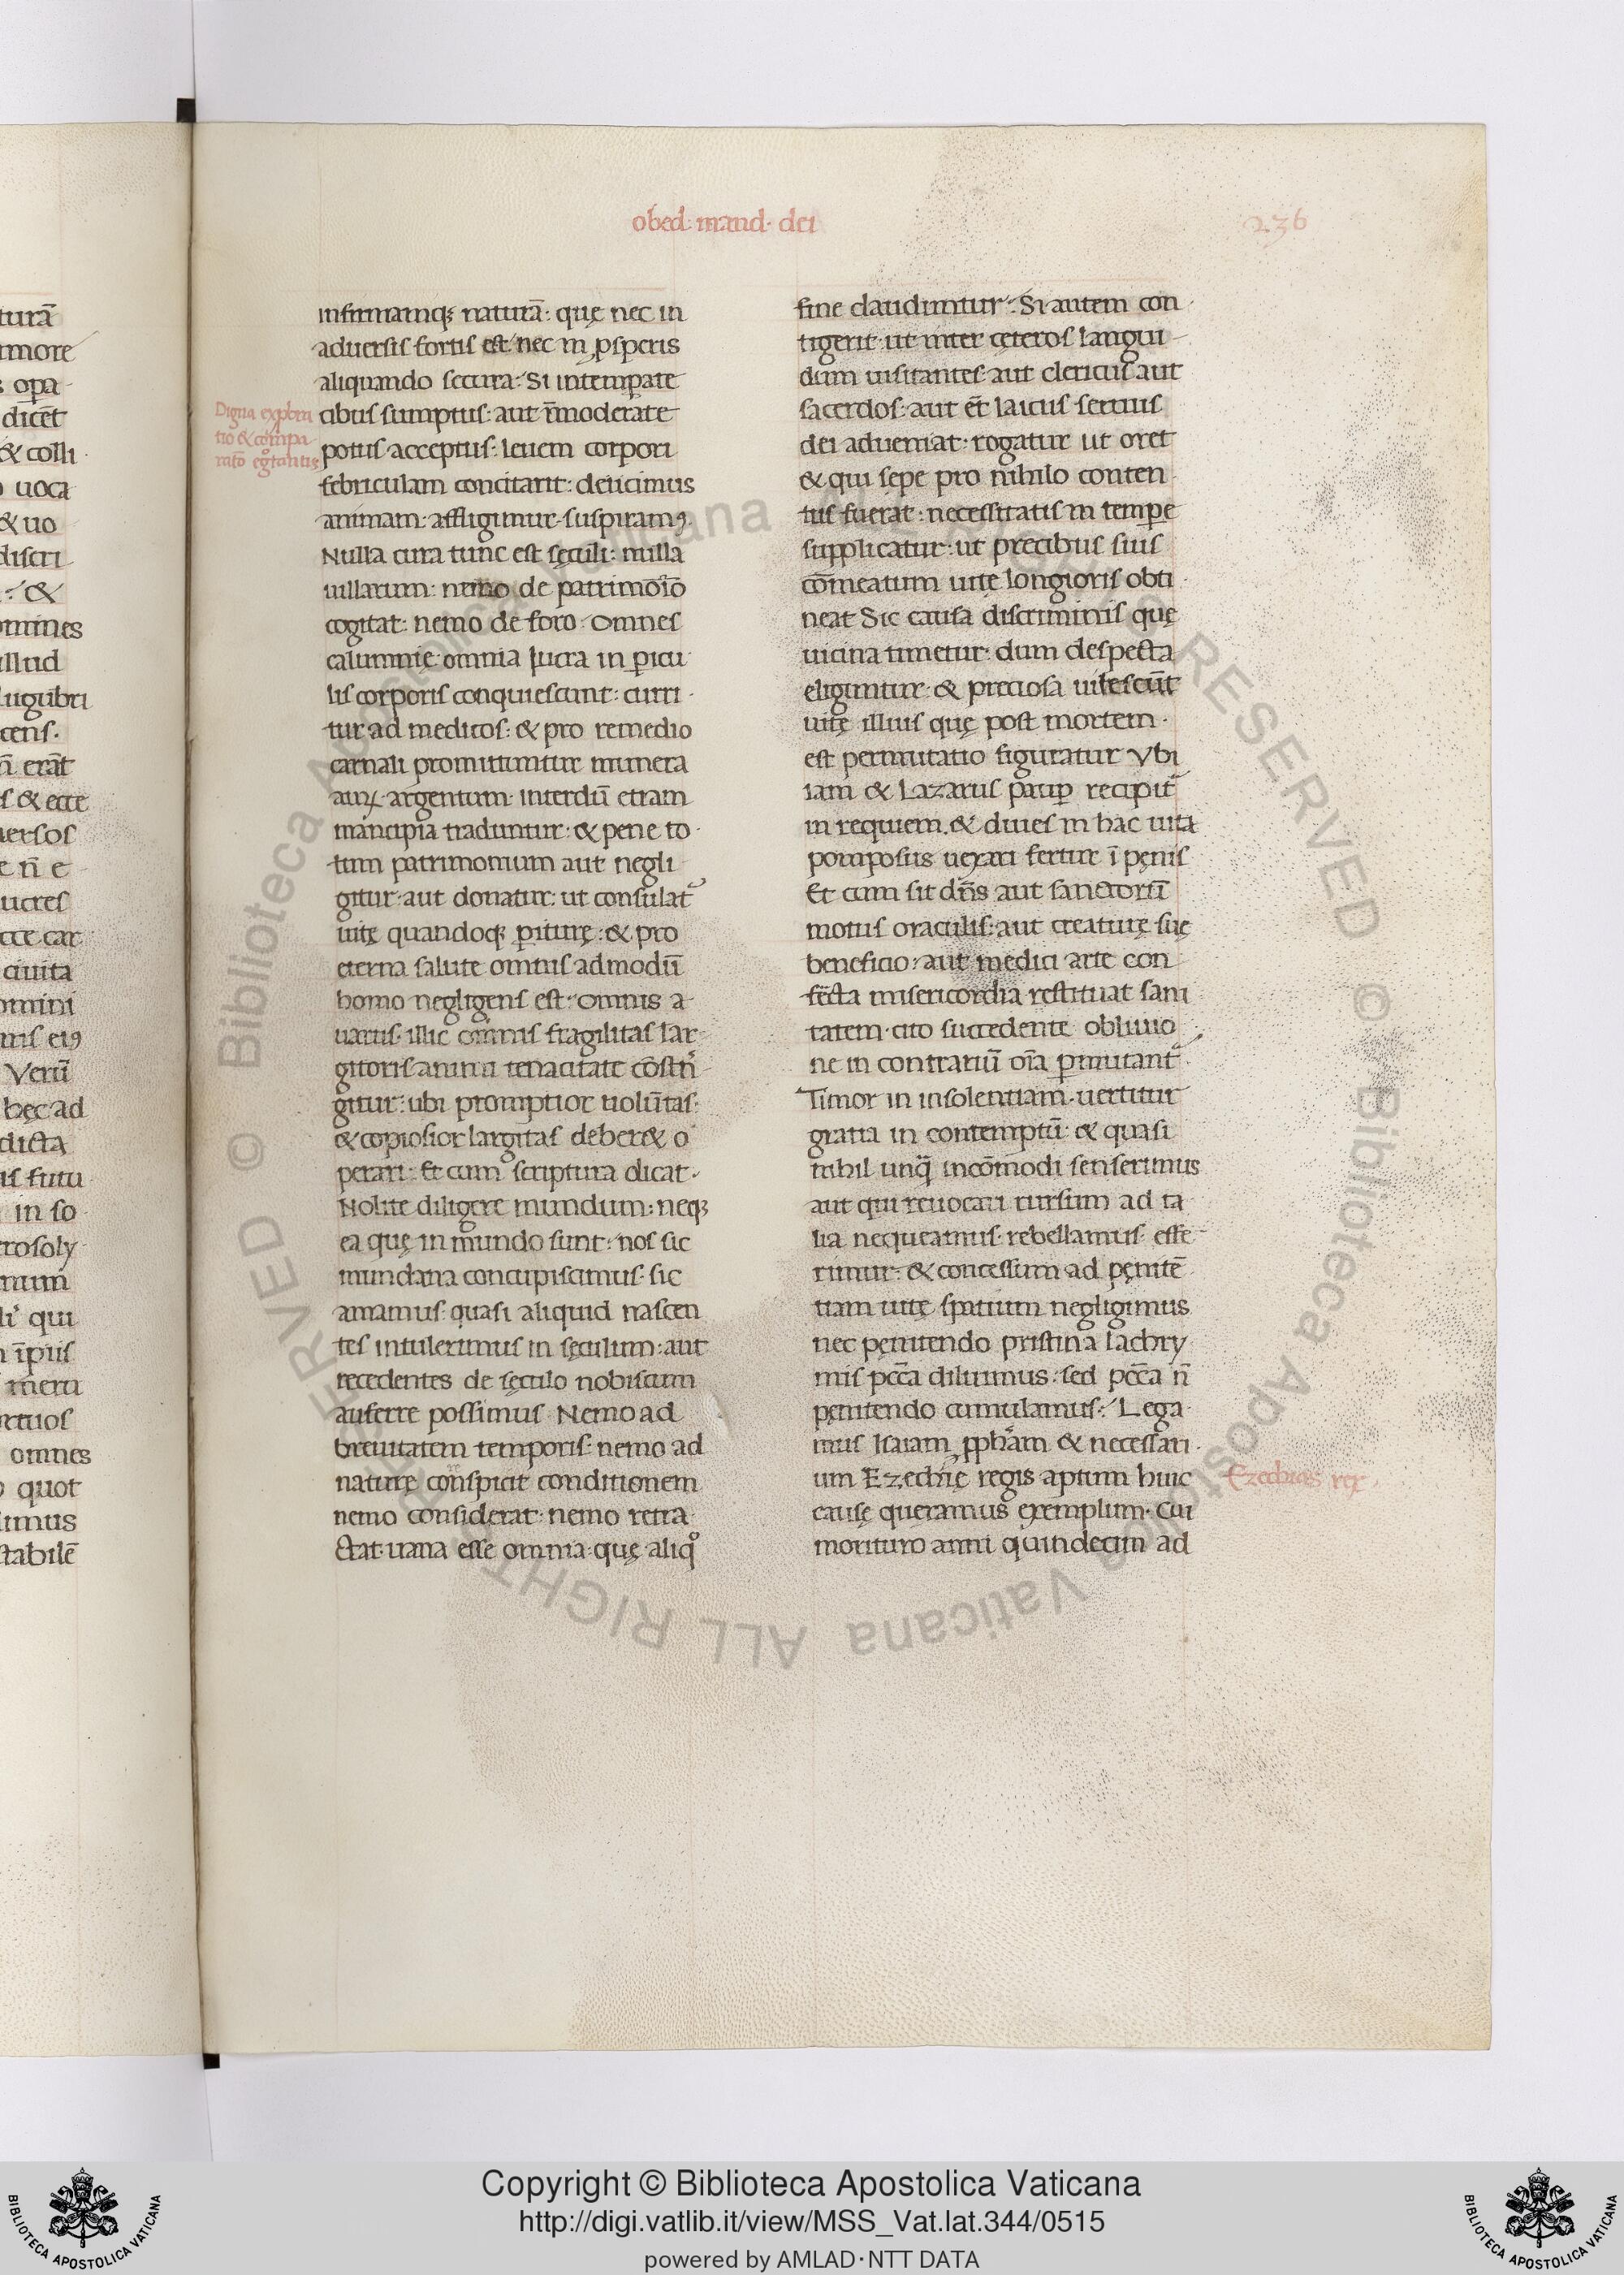 obed. mand. dei
236
infirmamq; naturā: quę nec in
aduersis fortis est: nec in ꝓsperis
aliquando secura: Si intemꝑate
cibus sumptus: aut īmoderate
potus acceptus: leuem corpori
febriculam concitarit: deiicimus
animam: affligimur. suspiramꝰ.
Nulla cura tunc est sęculi: nulla
uillarum: nemo de patrimoīo
cogitat: nemo de foro. Omnes
calumnię. omnia lucra in ꝑicu
lis corporis conquiescunt: curri
tur ad medicos: & pro remedio
carnali promittuntur munera
auꝝ. argentum. interdū etiam
mancipia traduntur: & pene to
tum patrimonium aut negli
gitur. aut donatur: ut consulat᷑
uitę quandoq; ꝑiturę: & pro
eterna salute omnis admodū
homo negligens est. Omnis a
uarus. illic omnis fragilitas lar
gitoris animi tenacitate cōstrī
gitur: ubi promptior uolūtas:
& copiosior largitas deber& o
perari: Et cum scriptura dicat.
Nolite diligere mundum: neq;
ea quę in mundo sunt: nos sic
mundana concupiscimus. sic
amamus. quasi aliquid nascen
tes intulerimus in sęculum: aut
recedentes de sęculo nobiscum
auferre possimus. Nemo ad
breuitatem temporis: nemo ad
naturę conspicit conditionem
nemo considerat. nemo retra
ctat uana esse omnia. quę aliqͦ
Digna explora
tio & compa
ratō egrotantis
fine clauduntur: Si autem con
tigerit. ut inter cęteros langui
dum uisitantes. aut clericus aut
sacerdos: aut ēt laicus seruus
dei adueniat. rogatur ut oret
& qui sepe pro nihilo conten
tus fuerat: necessitatis in tempe
supplicatur: ut precibus suis
cōmeatum uitę longioris obti
neat Sic causa discriminis quę
uicina timetur: dum despecta
eliguntur. & preciosa uilescūt
uitę illius quę post mortem
est permutatio figuratur Vbi
iam & Lazarus pauꝑ recipit᷑
in requiem. & diues in hac uita
pomposus uexari fertur ī pęnis
Et cum sit dn̄s aut sanctorū
motus oraculis: aut creaturę suę
beneficio: aut medici arte con
fecta misericordia restituat sani
tatem. cito succedente obliuio
ne in contrariū oīa ꝑmutant᷑
Timor in insolentiam. uertitur
gratia in contemptū. & quasi
nihil unq̄ incōmodi senserimus
aut qui reuocari rursum ad ta
lia nequeamus. rebellamus. effe
rimur. & concessum ad pęnitē
tiam uitę spatium negligimus
nec pęnitendo pristina lachry
mis pcc̄a diluimus: sed pcc̄a n̄
pęnitendo cumulamus: Lega
mus Isaiam ꝓpham & necessari
um Ezechię regis aptum huic
causę queramus exemplum. Cui
morituro anni quindecim ad
Ezechias rex
turā
more
opa
dicēt
& colli
uoca
& uo
discri
&
omnes
illud
lugubri
cens.
erāt
& ecce
uersos
ucres
car
ciuita
omini
eiꝰ
Verū
hęc ad
dicta
futu
in so
rosoly
qui
meru
omnes
quot
imus
tabilē
Copyright © Biblioteca Apostolica Vaticana
http://digi.vatlib.it/view/MSS_Vat.lat.344/0515
powered by AMLAD·NTT DATA
BIBLIOTECA APOSTOLICA VATICANA
BIBLIOTECA APOSTOLICA VATICANA
© Biblioteca Apostolica Vaticana ALL RIGHTS RESERVED © Biblioteca Apostolica Vaticana ALL RIGHTS RESERVED